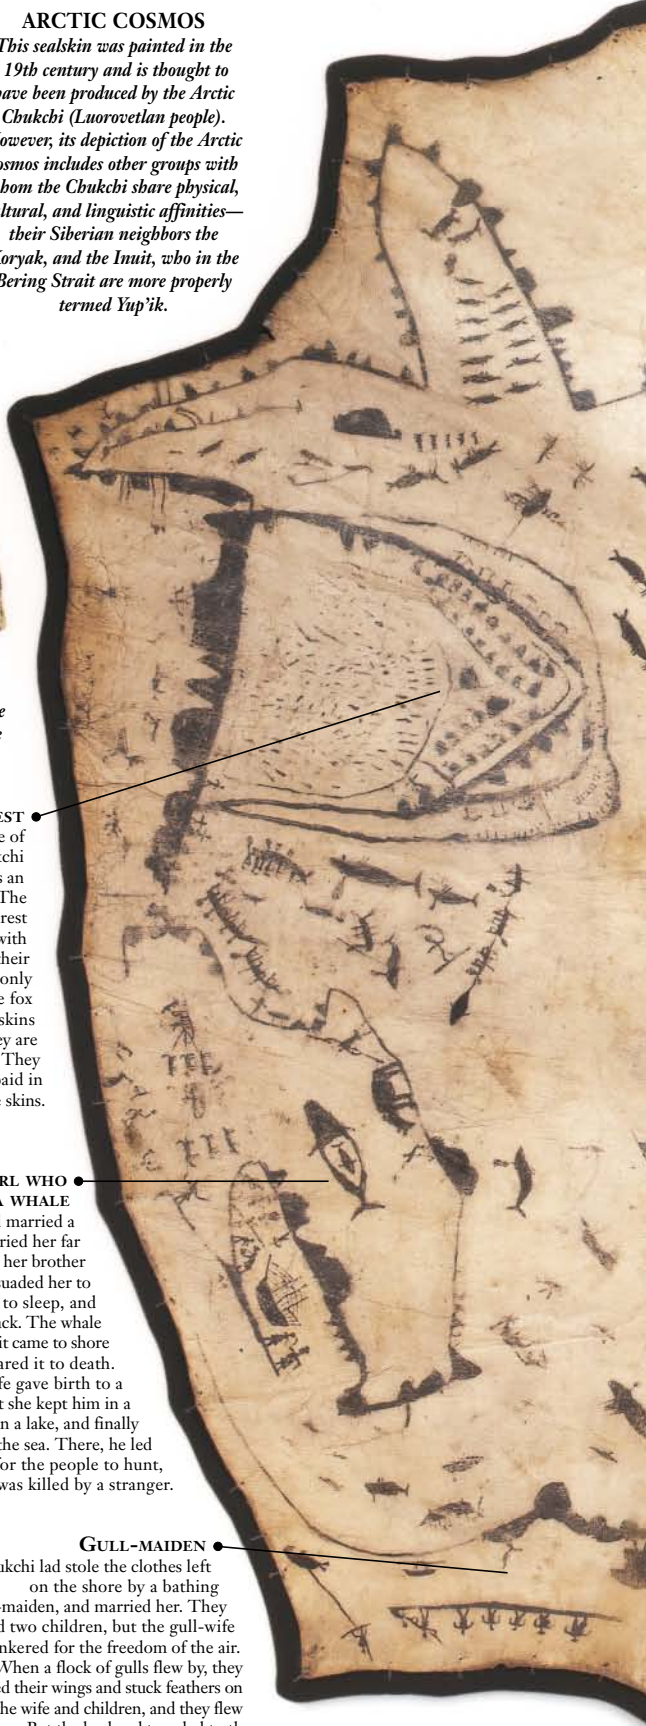 ARCTIC COSMOS
This sealskin was painted in the
19th century and is thought to
have been produced by the Arctic
Chukchi (Luorovetlan people).
owever, its depiction of the Arctic
osmos includes other groups with
hom the Chukchi share physical,
ltural, and linguistic affinities—
their Siberian neighbors the
Koryak, and the Inuit, who in the
Bering Strait are more properly
termed Yup’ik.
e
EST
e of
kchi
s an
The
rest
with
their
only
e fox
skins
ey are
They
paid in
e skins.
RL WHO
A WHALE
l married a
ried her far
her brother
suaded her to
to sleep, and
ck. The whale
it came to shore
ared it to death.
fe gave birth to a
t she kept him in a
n a lake, and finally
the sea. There, he led
for the people to hunt,
was killed by a stranger.
GULL-MAIDEN
ukchi lad stole the clothes left
on the shore by a bathing
-maiden, and married her. They
d two children, but the gull-wife
nkered for the freedom of the air.
When a flock of gulls flew by, they
ed their wings and stuck feathers on
he wife and children, and they flew